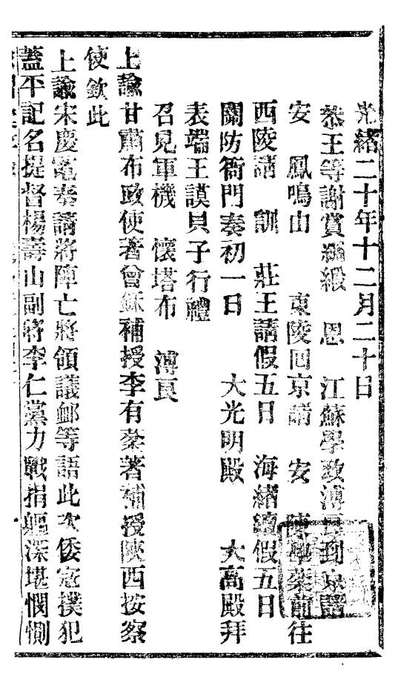 光緒二十年十二月二十日
恭王等謝賞綢緞　恩　江蘇學政溥良到京請
安　鳳鳴山　東陵囘京請　安　榮前往
西陵請　訓　莊王請假五日　海緒續假五日
關防衙門奏初一日　大光明殿　大高殿拜
表端王謨貝子行禮
召見軍機　懷塔布　溥良
上諭甘肅布政使著曾鉌補授李有棻著補授陝西按察
使欽此
上諭宋慶電奏請將陣亡將領議卹等語此次倭寇撲犯
蓋平記名提督楊壽山副將李仁黨力戰捐軀深堪憫惻